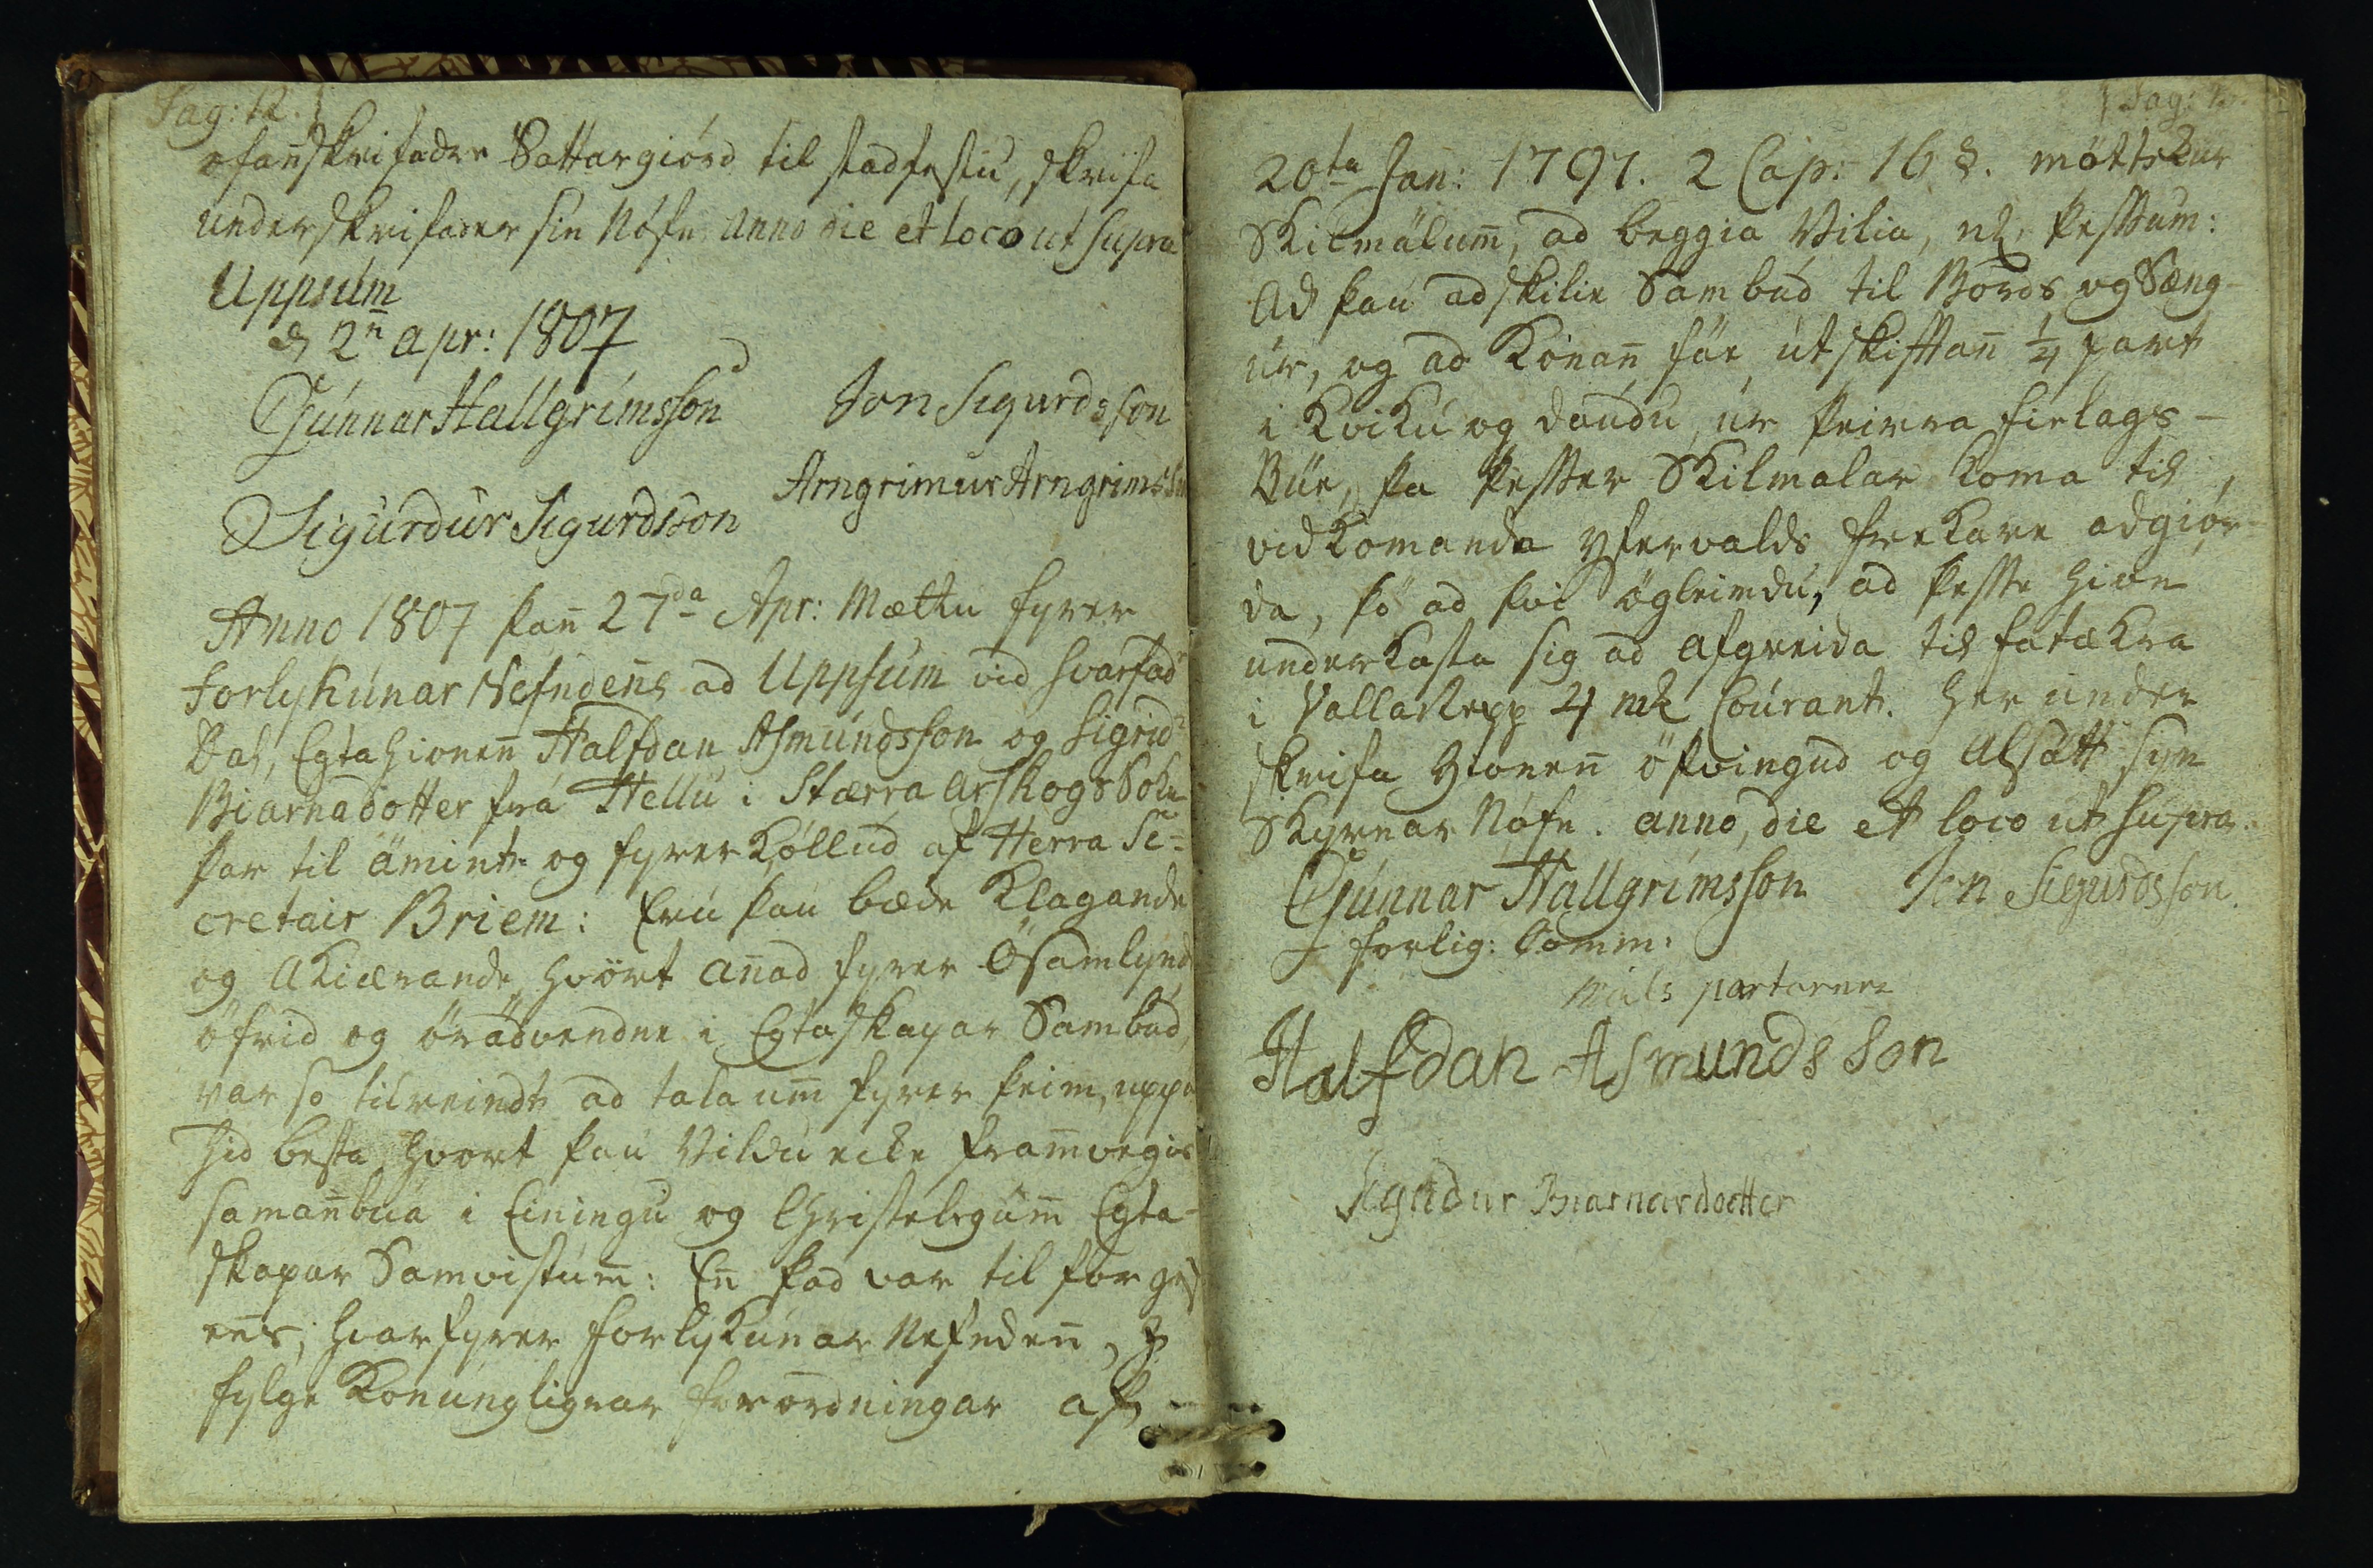 Pag: 12.
ofannskrifadre Sáttargiörd til stadfestu, skrifa
underskrifader sin Nöfn anno die et loco ut supra
Uppsum
d 2n apr: 1807
Gúnnar Hallgrímsson Jon Sigurdsson
Arngrimur Arngrimsson
Sigurdur Sigurdsson
Anno 1807 þan̄ 27da Apr: Mættu fyrer
Forlykúnar Nefnden̄e ad Uppsum vid Svarfad
Dal, Egtahionen̄ Halfdan Asmúndsson og Sigrid
Biarnadotter frá Hellu i Stærra Arskogs Sokn
þar til ámint og fyrerköllud af Herra Se-
cretair Briem: Eru þau bæde Klagande
og Akiærande hvört an̄ad fyrer Ósamlynd
ófrid og órádvendne i Egtaskapar Sambúd,
var so tilreindt ad tala um̄ fyrer þeim, uppá
hid besta hvort þau Vildu ecke fram̄vegis
saman̄búa i Einingu og Christelegum̄ Egta-
skapar Samvistum̄: En̄ þad var til for gef
ens, hvarfyrer Forlykunar Nefnden̄,
fylge Konungligrar forordningar af
20ta Jan: 1797. 2 Cap: 16 §. móttekur
Skilmálum̄, ad beggia Vilia, nl. þessum:
Ad þau adskilie Sambúd til Bords og Sæng-
ur, og ad Konan̄ fáe útskiftan̄ 1/4 part
i Kviku og daudu, úr þeirra fielags-
Búe, þa þesser Skilmalar koma til
vidkomande yfervalds frekare adgiör-
da, þó ad því ógleimdu, ad þesse hion
underkasta sig ad afgreida til fatækra
i Vallahrepp 4 mk Courant. Her under
skrifa Hionen̄ óþvingud og Alsátt syn
Skyrnar Nöfn. anno, die et loco ut supra.
Gúnnar Hallgrímsson Jon Sigurdsson.
forlig: Comm:
Mals partarner
Halfdan Asmunds son
Sigridur Biarnardotter